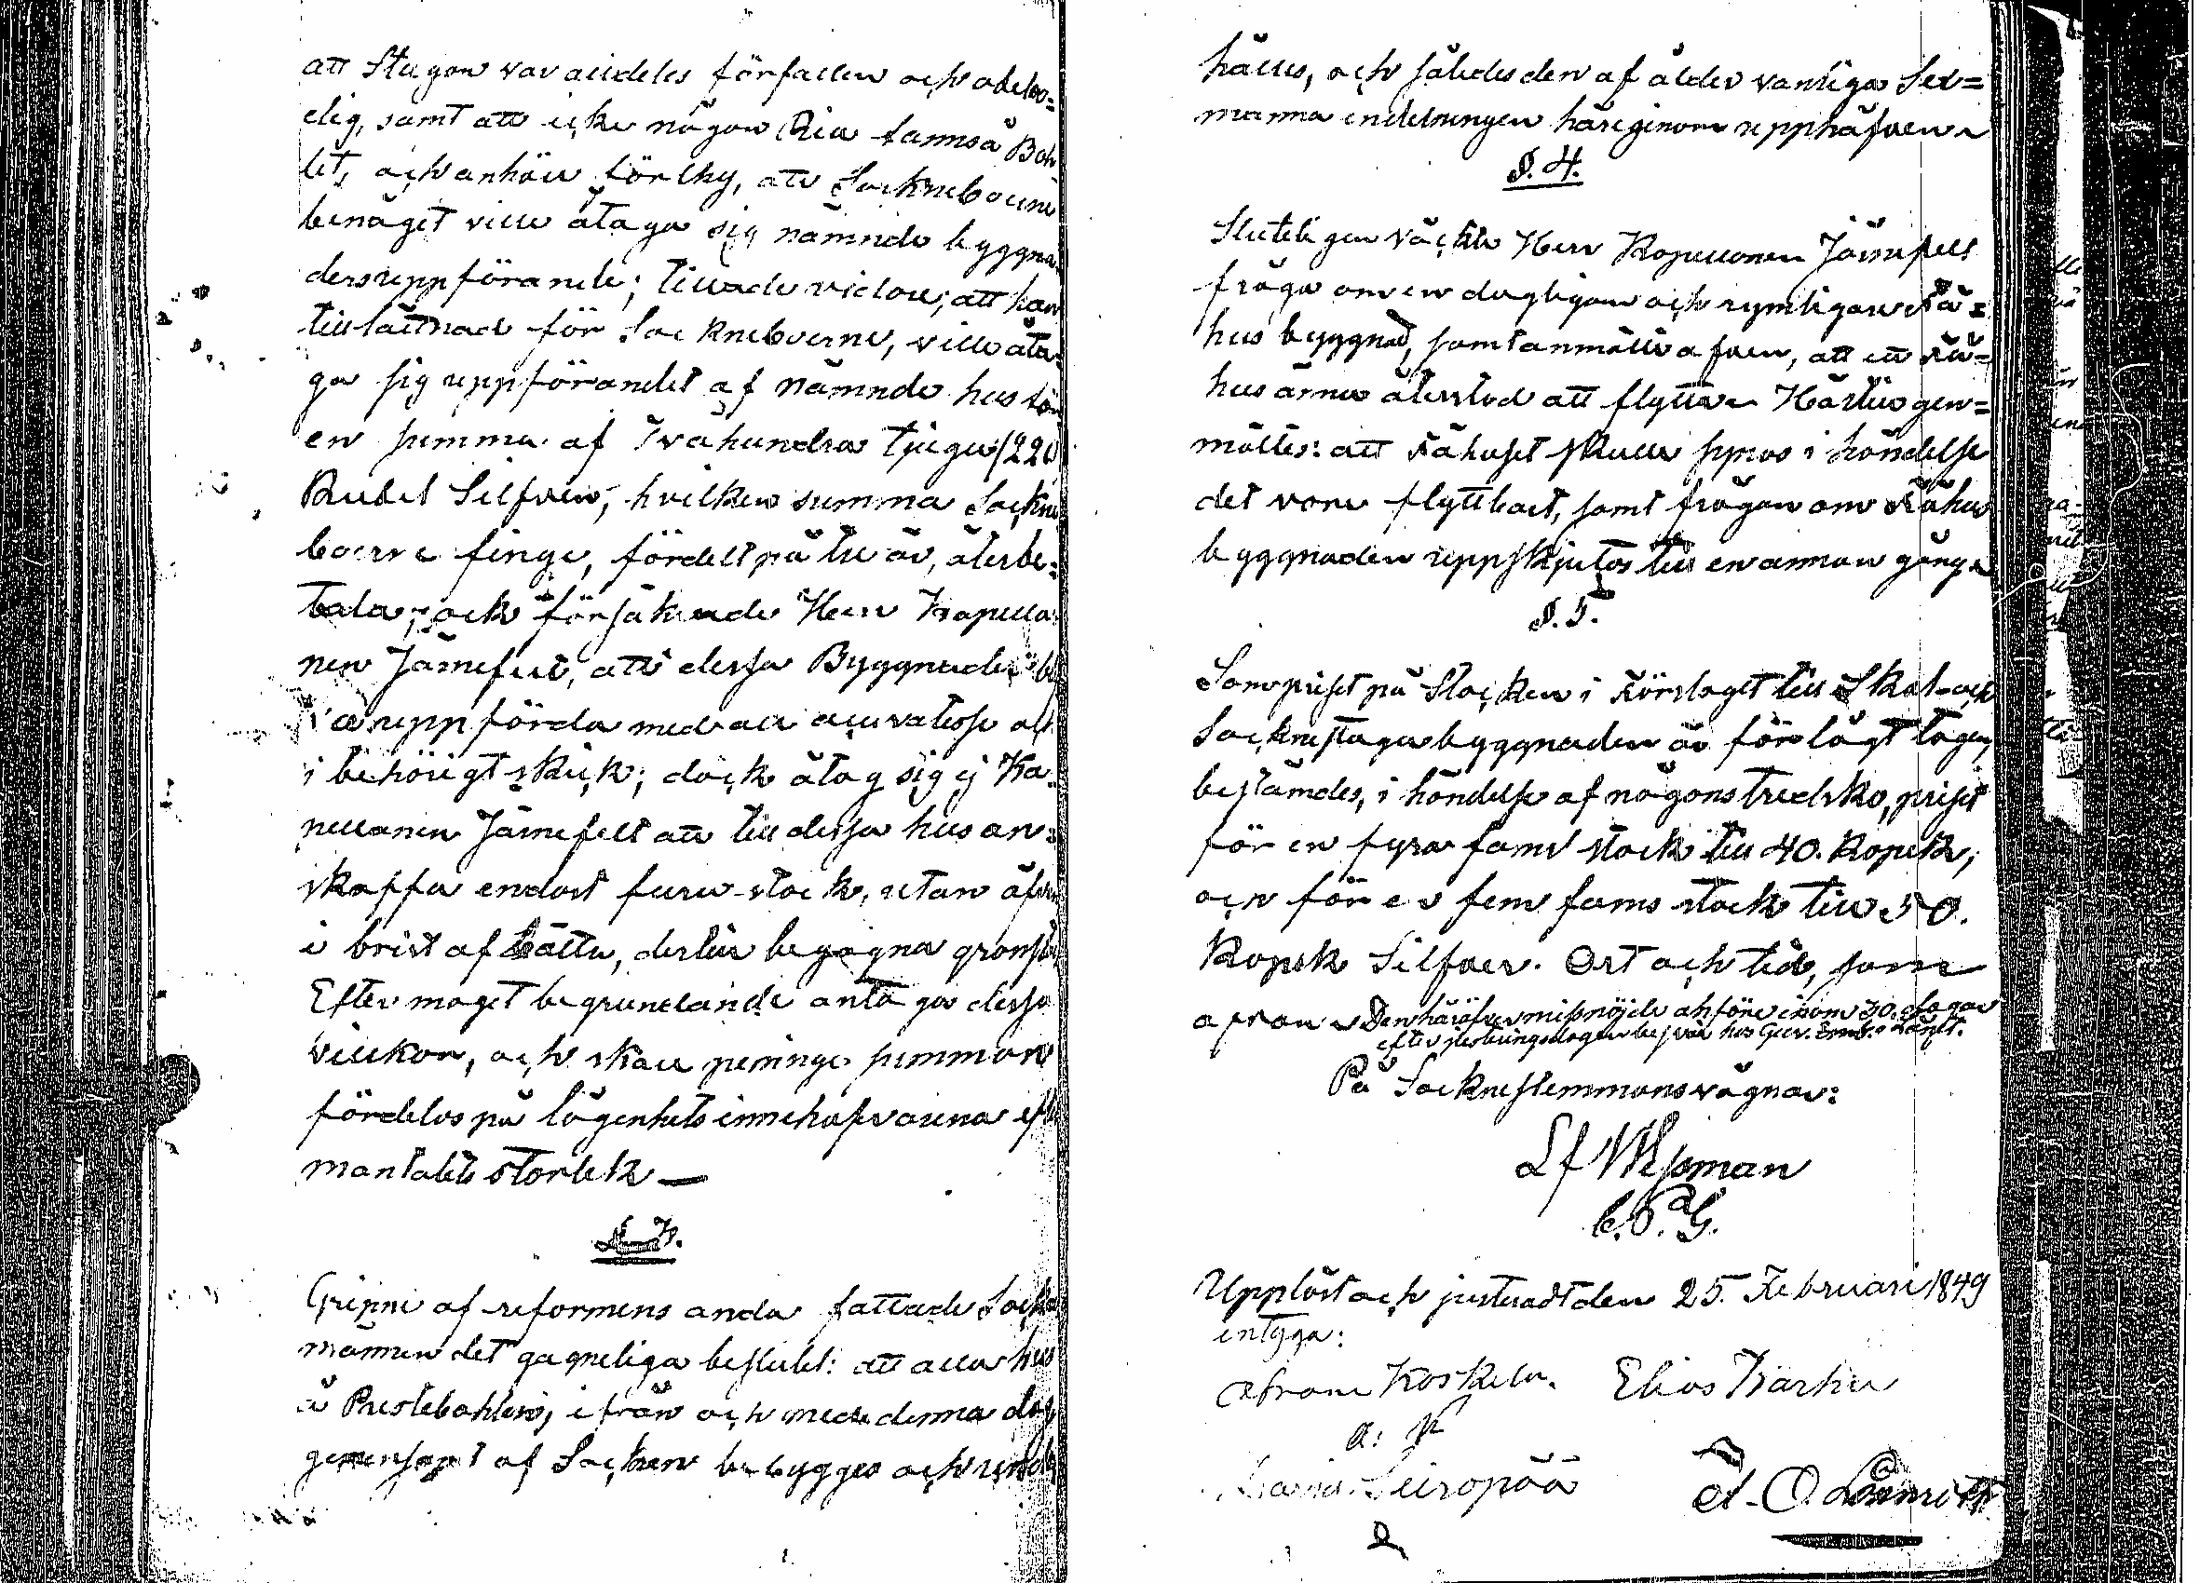 att Stugan var alldeles förfallen och obebo=
elig, samt att icke någon Ria fanns å Boh
let, och anhöll förthy, att Sockneboerne
benäget ville åtaga sig nämnde byggna
ders uppförande; tillade vidare; att han
till lättnad för Sockneboerne, ville åta
ga sig uppförandet af nämnde hus för
en summa af Tvåhundra tjugu (220
Rubel Silfver, hvilken summa Sockne
boerne finge, fördelt på tre år, återbe=
tala; och försäkrade Herr Kapella
nen Järnefelt, att dessa Byggnader
uppförda med all accuratesse och
i behörigt skick; dock åtog sig ej Ka
pellanen Järnefelt att till dessa hus an=
skaffa endast furu-stock, utan äfven
i brist af bättre, dertill begagna
Efter moget begrundande antaga dessa
villkor, och skall peninge summan
fördelas på lägenhets innehafvarena efter
mantalets storlek —
§. 3.
Gripne af reformens anda fattade Sockne
männen det gagneliga beslutet: att alla hus
å Prestebohlen, ifrån och med denna dag
gemensamt af Socken bebygges och under
hålles, och således den af ålder vanliga Sex=
manna indelningen härigenom upphäfven
§. 4.
Sluteligen väckte Herr Kapellanen Järnefelt
fråga om en dugligare och rymligare Fä=
hus byggnad, samt anmälte afven, att ett Fä=
hus ännu återstod att flytta Härtill gen=
mältes: att Fähuset skulle synas i händelse
det vore flyttbart, samt frågan om Fähus
byggnaden uppskjutas till en annan gång
§. 5.
Som priset på Stocken i Förslaget till Skol- och
Socknestuga byggnaden är för lågt tagen
bestämdes, i händelse af någons tredsko, priset
för en fyra famns stock till 40. Kopek,
och för en fem famns stock till 50.
Kopek Silfver. Ort och tid, som
ofvan Den häröfver missnöjde anföre inom 30. dagar
efter justeringsdagen besvär hos Guv. Emb. o Kansl.
På Sockne stemmans vägnar:
C. P. G.
Uppläst och justeradt den 25. Februari 1849
intyga:
Abram Koskela. Elias Kärki